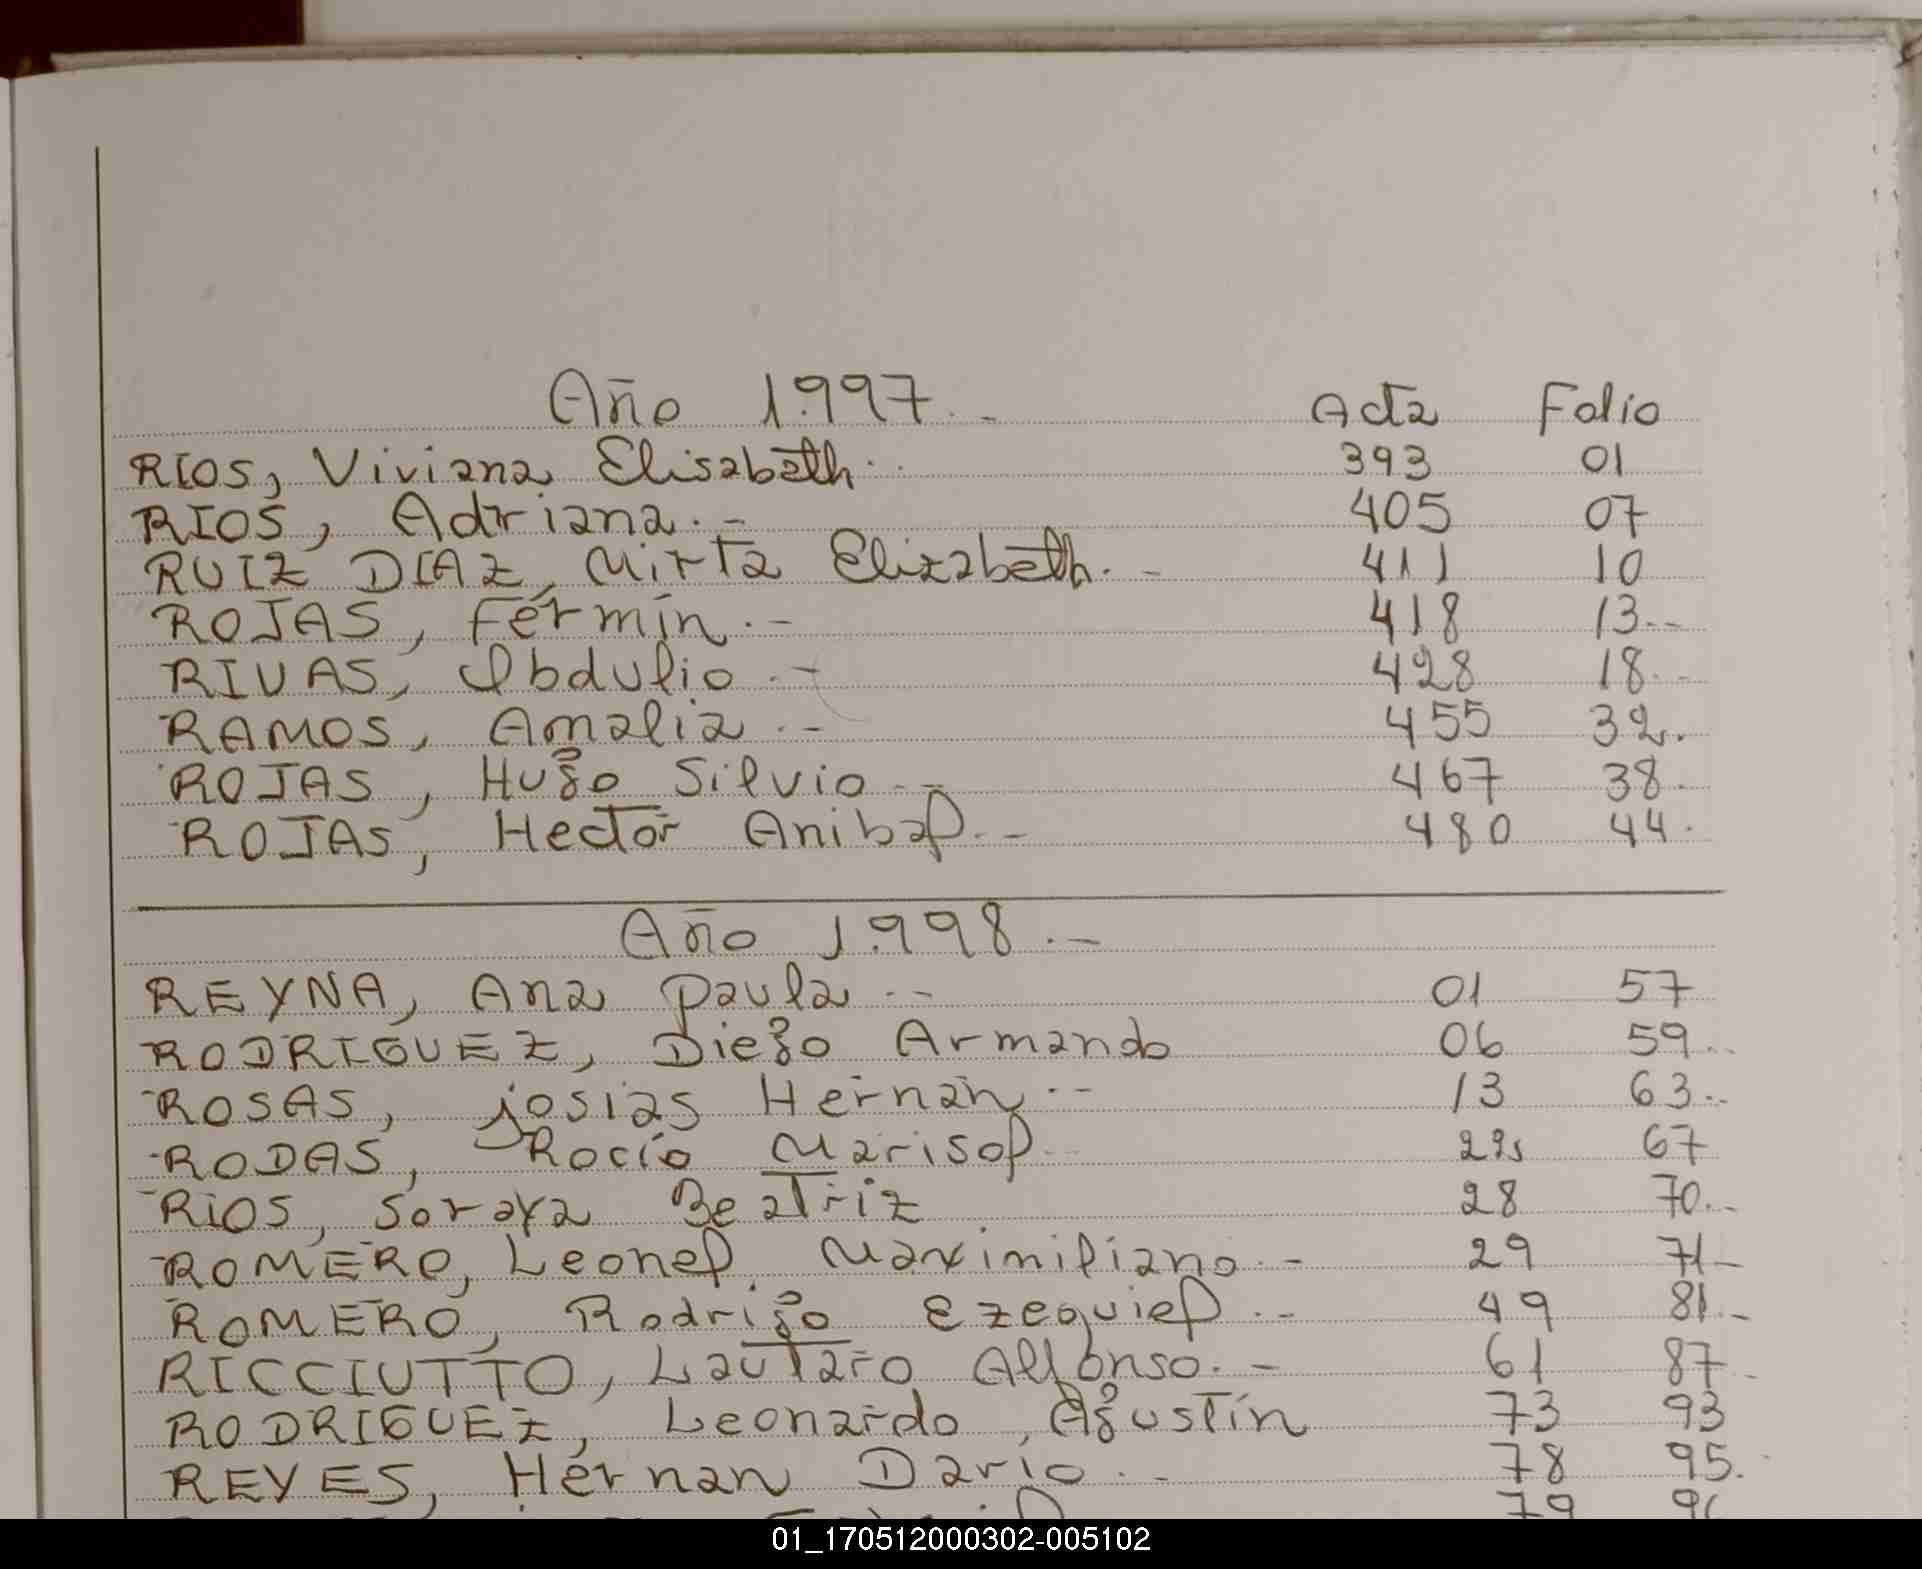 Año 1.997.- Acta Folio
RIOS, Viviana Elisabeth.. 393 01
RIOS, Adriana.- 405 07
RUIZ DIAZ, Mirta Elizabeth.- 411 10
ROJAS, Fermín.- 418 13.-
RIVAS, Obdulio.- 428 18.-
RAMOS, Amalia.- 455 32.
ROJAS, Hugo Silvio.- 467 38.
ROJAS, Hector Anibal.- 480 44.
Año 1.998.-
REYNA, Ana Paula.- 01 57
RODRIGUEZ, Diego Armando 06 59..
ROSAS, Josias Hernán.- 13 63..
RODAS, Rocío Marisol.. 67
RIOS, Soraya Beatriz 28 70.-
ROMERO, Leonel Maximiliano.- 29 71-
ROMERO, Rodrigo Ezequiel.- 49 81.-
RICCIUTTO, Lautaro Alfonso.- 61 87.
RODRIGUEZ, Leonardo, Agustín 73 93
REYES, Hernan Dario.- 78 95.
79
01_170512000302-005102